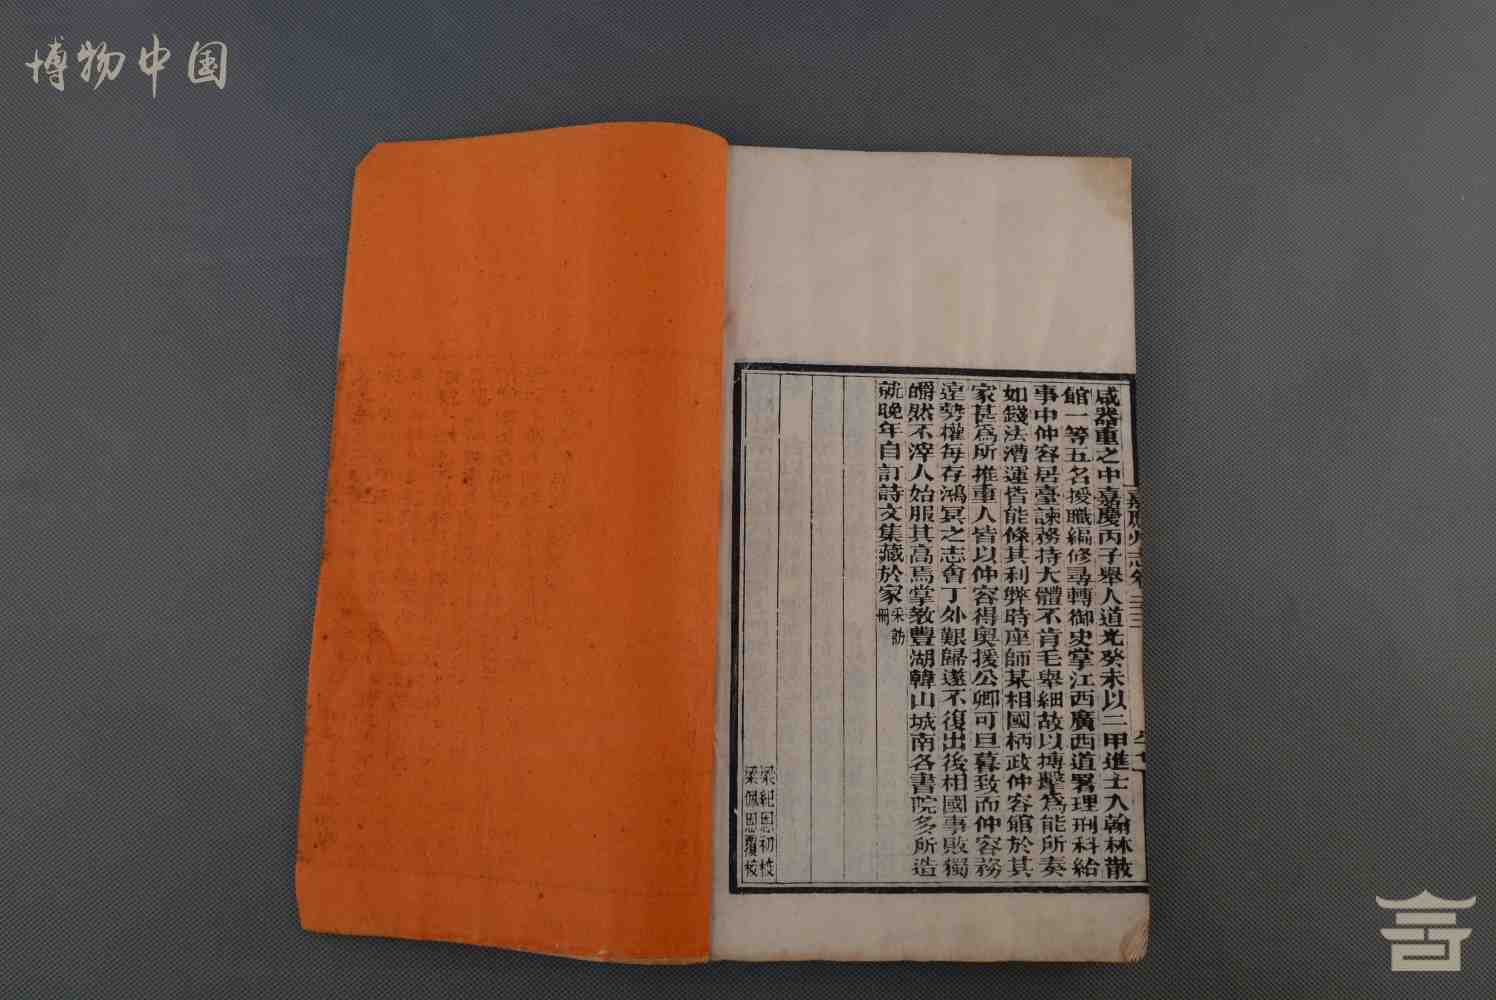 博物中国
嘉應州志卷二十三
咸器重之中嘉慶丙子舉人道光癸未以二甲進士入翰林散
館一等五名授職編修尋轉御史掌江西廣西道署理刑科給
事中仲容居臺諫務持大體不肯毛舉細故以搏擊爲能所奏
如錢法漕運皆能條其利弊時座師某相國柄政仲容館於其
家甚爲所推重人皆以仲容得奥援公卿可旦暮致而仲容務
遠勢權每存鴻冥之志會丁外艱歸遂不復出後相國事敗獨
皭然不滓人始服其高焉掌教豐湖韓山城南各書院多所造
就晚年自訂詩文集藏於家采訪冊
梁紀恩初校
梁佩恩覆校